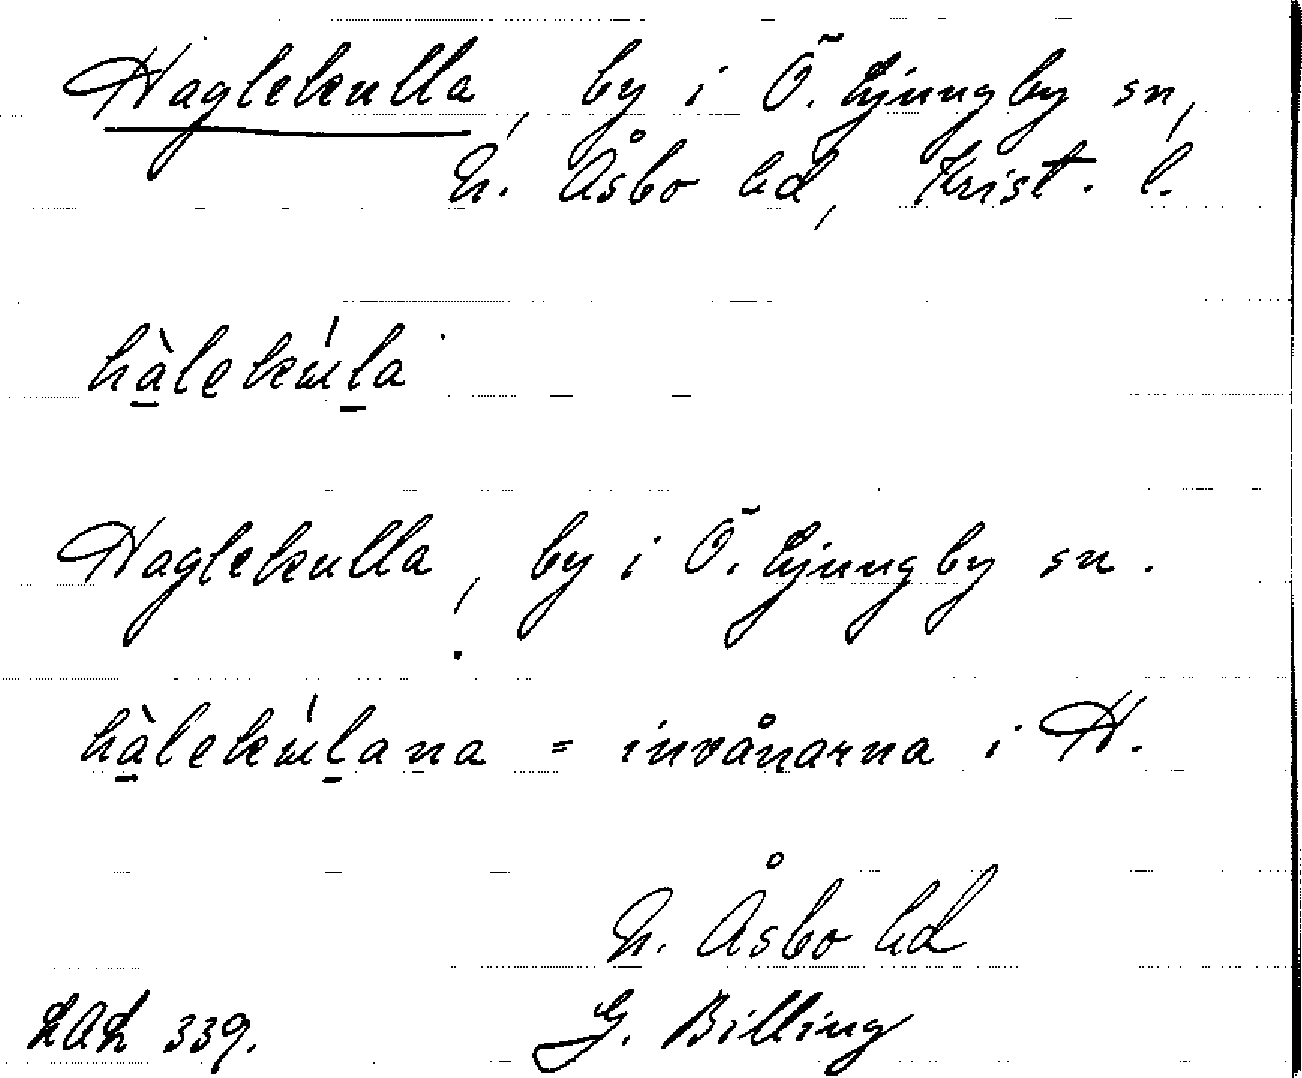 Haglekulla, by i Ö. Ljungby sn,
N. Åsbo hd, Krist. l.
hàlekúla
Haglekulla, by i Ö. Ljungby sn.
hàlekúlana = invånarna i H.
N. Åsbo hd
LAL 339. G. Billing